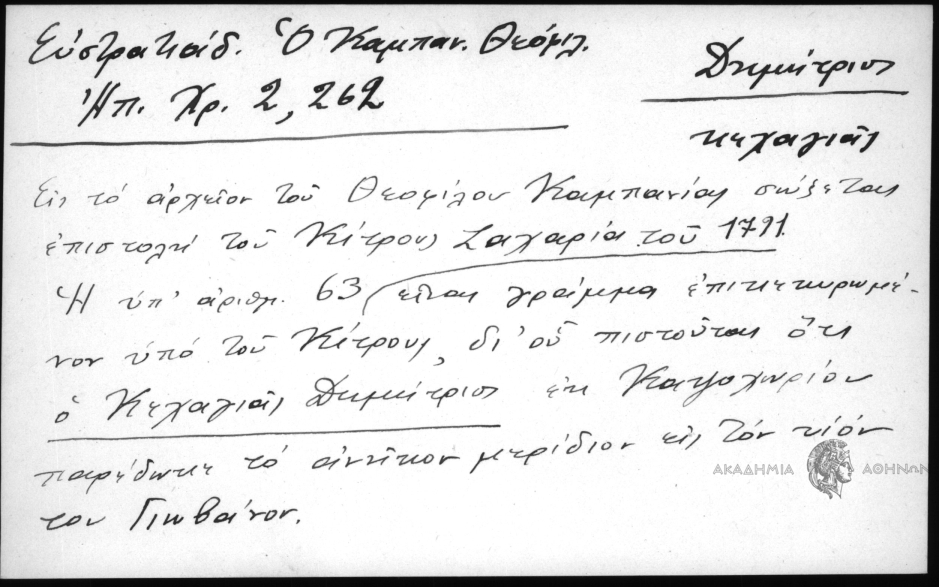 Εὐστρατιάδ. Ὁ Καμπαν. Θεόφιλ.
Ἠπ. Χρ. 2, 262
Δημήτριος
κεχαγιᾶς
Εἰς τό ἀρχεῖον τοῦ Θεοφίλου Καμπανίας σώζεται
ἐπιστολή τοῦ Κίτρους Ζαχαρία τοῦ 1791
Ἡ ὑπ' ἀριθμ. 63 εἶναι γράμμα ἐπικεκυρωμέ-
νον ὑπό τοῦ Κίτρους, δι' οὗ πιστοῦται ὅτι
ὁ Κεχαγιᾶς Δημήτριος ἐκ Κατζοχωρίου
παρέδωκε τό ἀνῆκον μερίδιον εἰς τόν υἱόν
του Γιωβάνον.
ΑΚΑΔΗΜΙΑ ΑΘΗΝΩΝ